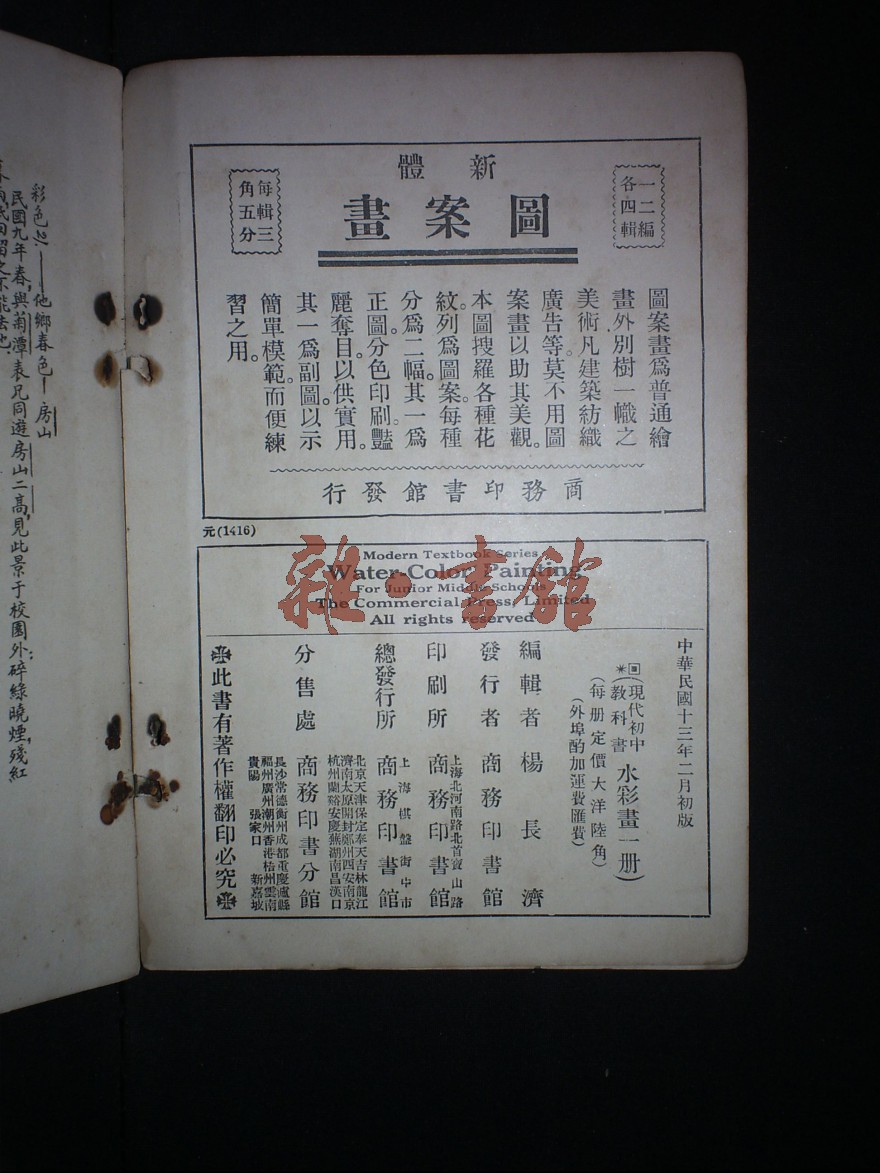 新體
圖案畫
一二編
各四輯
每輯三
角五分
圖案畫爲普通繪
畫外別樹一幟之
美術凡建築紡織
廣告等。莫不用圖
案畫以助其美觀。
本圖搜羅各種花
紋。列爲圖案。每種
分爲二幅。其一爲
正圖。分色印刷。豔
麗奪目。以供實用。
其一爲副圖。以示
簡單模範。而便練
習之用。
商務印書館發行
元(1416)
Modern Textbook Series
Water-Color Painting
For Junior Middle Schools
The Commercial Press, Limited
All rights reserved
中華民國十三年二月初版
(現代初中教科書 水彩畫一册)
(每册定價大洋陸角)
(外埠酌加運費匯費)
編輯者 楊長濟
發行者 商務印書館
印刷所 上海北河南路北首寶山路 商務印書館
總發行所 上海棋盤街中市 商務印書館
分售處 商務印書分館
北京天津保定奉天吉林龍江
濟南太原開封鄭州西安南京
杭州蘭谿安慶蕪湖南昌漢口
長沙常德衡州成都重慶瀘縣
福州廣州潮州香港梧州雲南
貴陽 張家口 新嘉坡
此書有著作權翻印必究
彩色 他鄉春色—房山
民國九年春,與菊潭表兄同遊房山二高,見此景于校園外:碎綠曉煙,殘紅
雜·書館